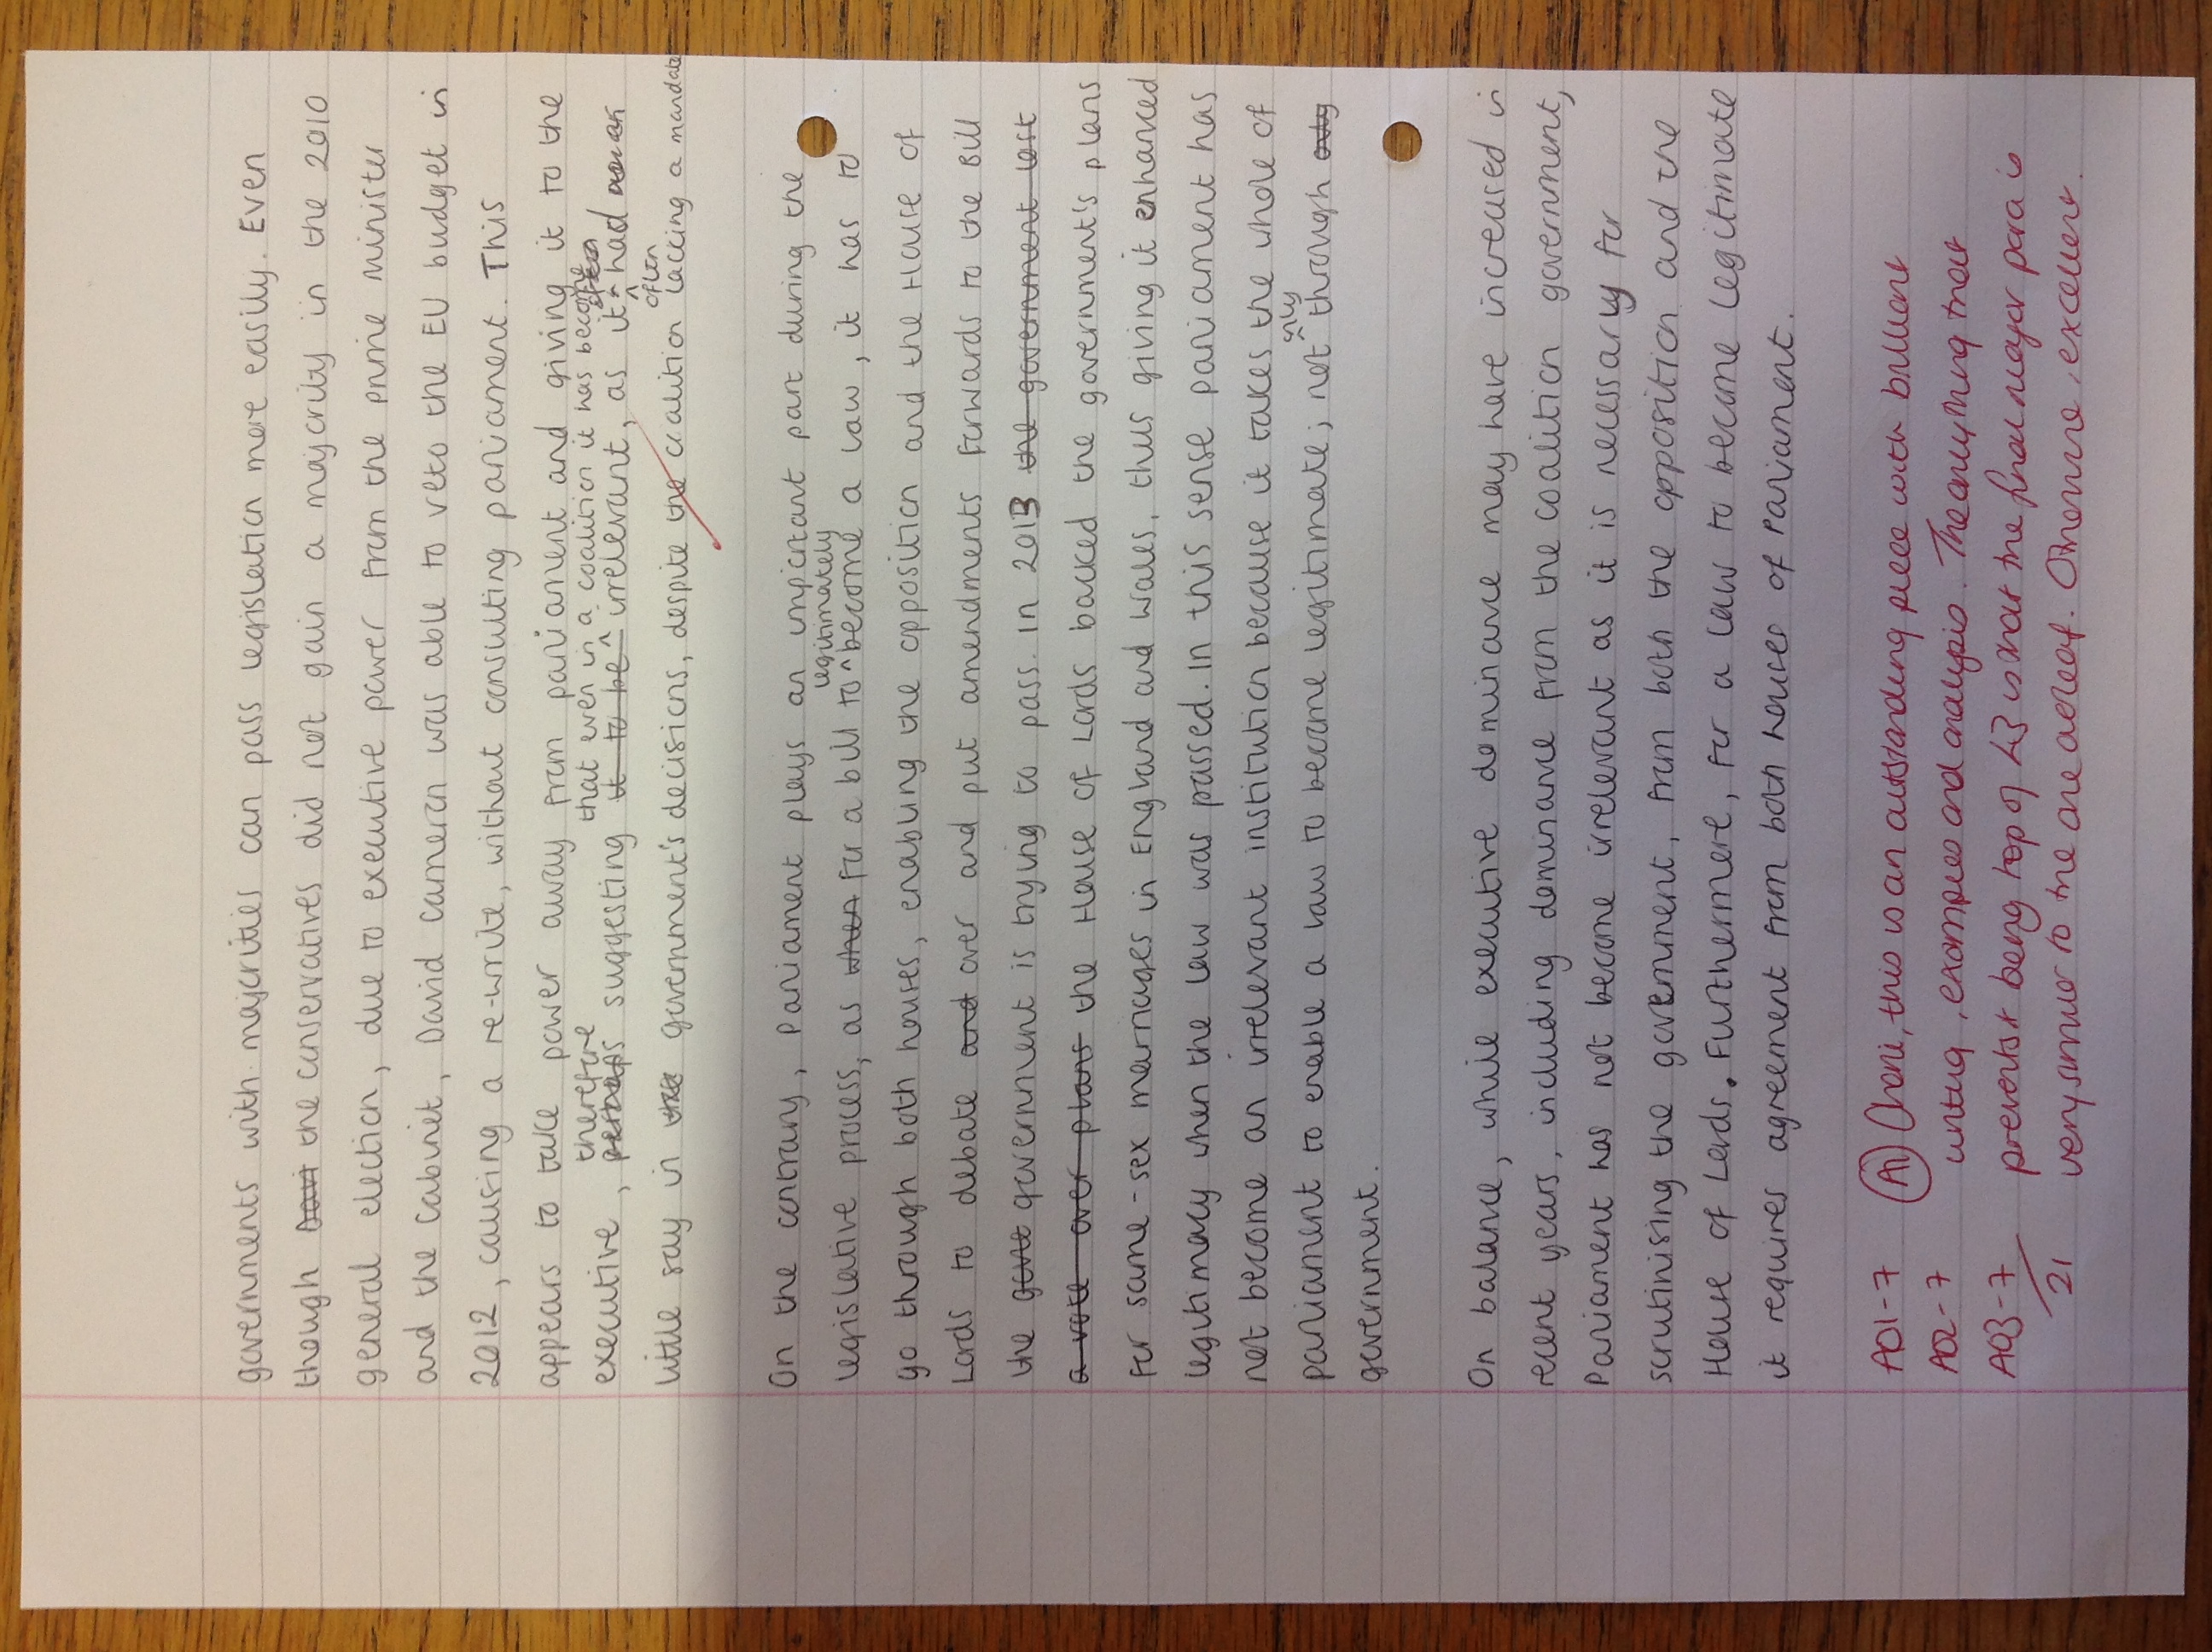 governments with majorities can pass legislation more easily. Even
though the conservatives did not gain a majority in the 2010
general election, due to executive power from the prime minister
and the cabinet, David cameron was able to veto the EU budget in
2012, causing a re-write, without consulting parliament. This
appears to take power away from parliament and giving it to the
therefore that even in a coalition it has become
executive, perhaps suggesting it to be irrelevant, as it had
often
little say in the government's decisions, despite the coalition lacking a mandate
On the contrary, Parliament plays an important part during the
legitimately
legislative process, as when for a bill to become a law, it has to
go through both houses, enabling the opposition and the House of
Lords to debate and over and put amendments forwards to the Bill
the govt government is trying to pass. In 2013 the government lost
a vote over plans the House of Lords backed the government's plans
for same-sex marriages in England and Wales, thus giving it enhanced
legitimacy when the law was passed. In this sense parliament has
not become an irrelevant institution because it takes the whole of
only
parliament to enable a law to become legitimate, not through only
government.
On balance, while executive dominance may have increased in
recent years, including dominance from the coalition government,
Parliament has not become irrelevant as it is necessary for
scrutinising the government, from both the opposition and the
House of Lords. Furthermore, for a law to become legitimate
it requires agreement from both houses of Parliament.
AO1-7 A1 this is an outstanding piece with brilliant
AO2-7 writing, examples and analysis. The only thing that
AO3-7 prevents it being top of L3 is that the final major para is
21 very similar to the one before it. Otherwise, excellent.